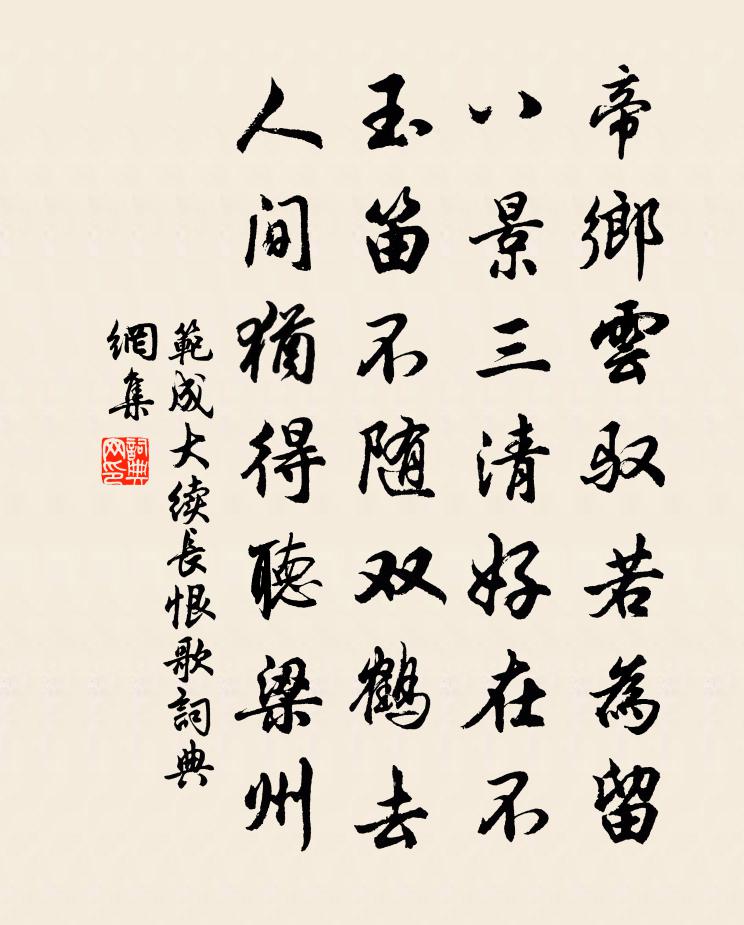 帝鄉雲驭若為留
八景三清好在不
玉笛不随双鶴去
人间猶得聽梁州
範成大续長恨歌詞典
網集
詞典
网印